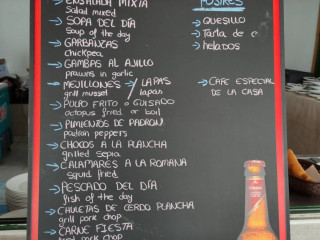 ENSALADA MIXTA
Salad mixed
SOPA DEL DÍA
Soup of the day
GARBANZAS
chickpea
GAMBAS AL AJILLO
prawns in garlic
MEJILLONES / LAPAS
grill mussel / lapas
PULPO FRITO o GUISADO
octopus fried or boil
PIMIENTOS DE PADRON
padron peppers
CHOCOS A LA PLANCHA
grilled sepia
CALAMARES A LA ROMANA
squid fried
PESCADO DEL DÍA
fish of the day
CHULETAS DE CERDO PLANCHA
grill pork chop
CARNE FIESTA
pork chop
POSTRES
QUESILLO
Tarta de
helados
CAFE ESPECIAL
DE LA CASA